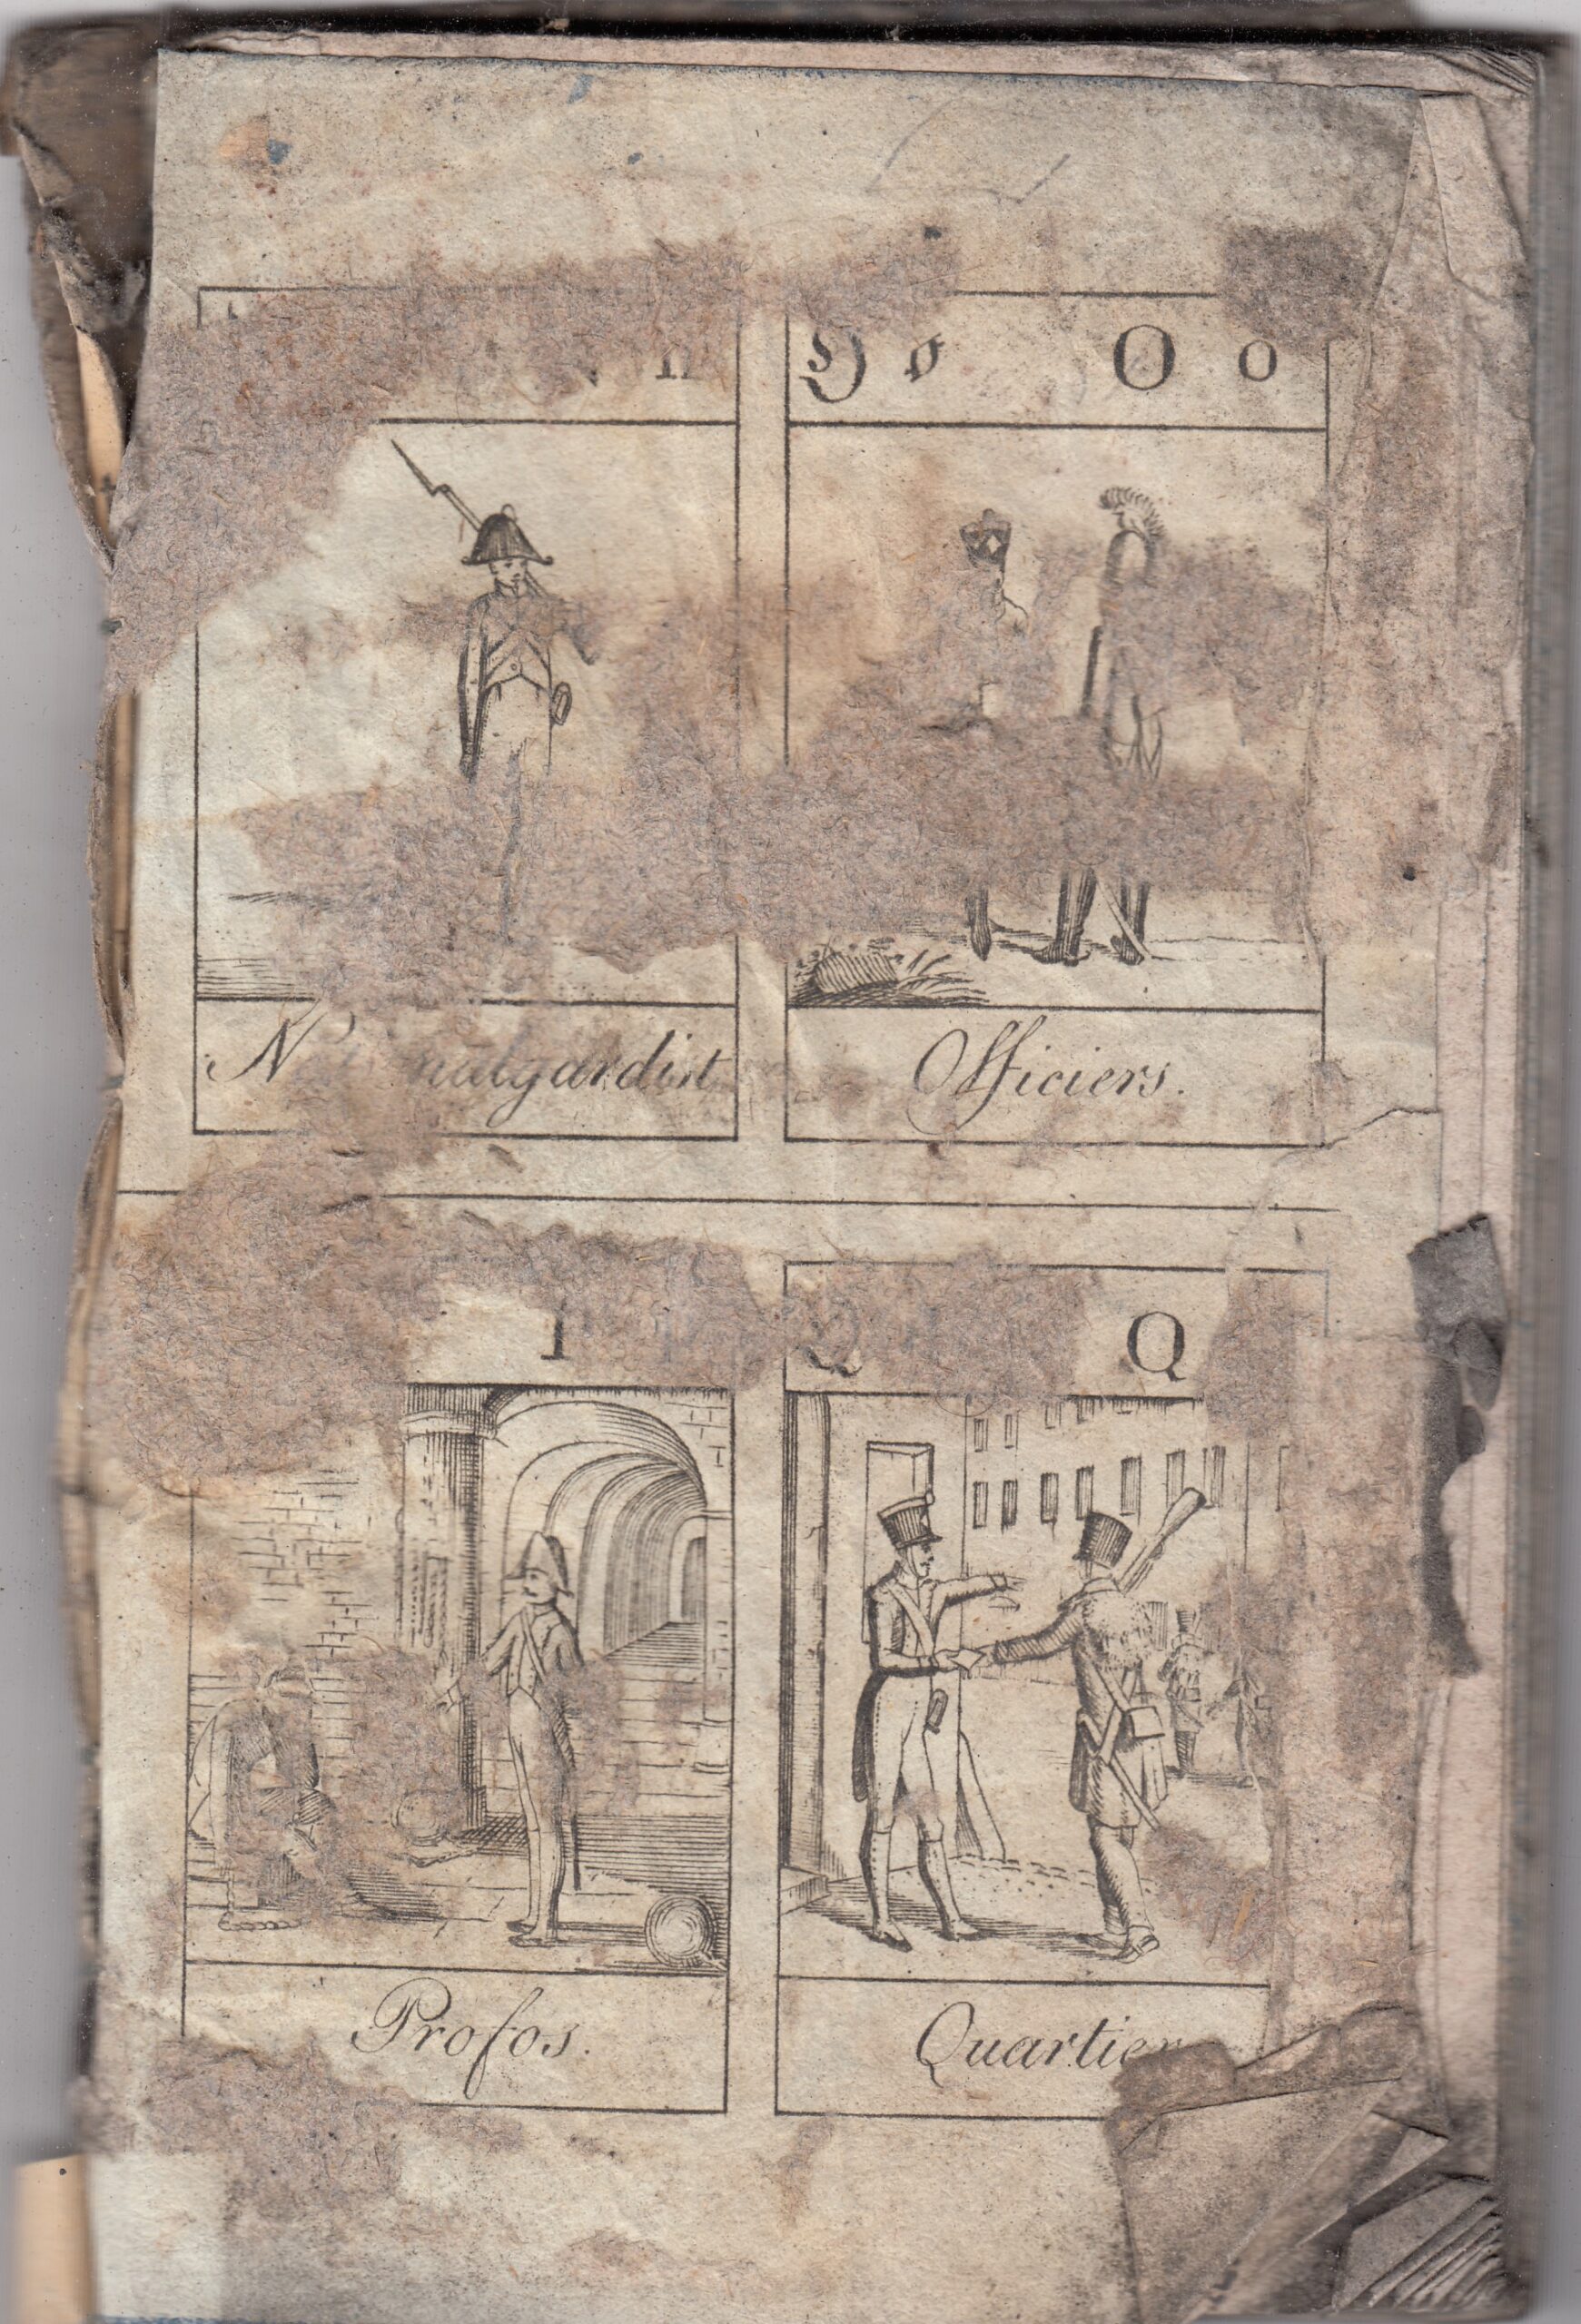 n
O o O o
Nationalgardist
Officiers.
Q Q
Profos.
Quartier